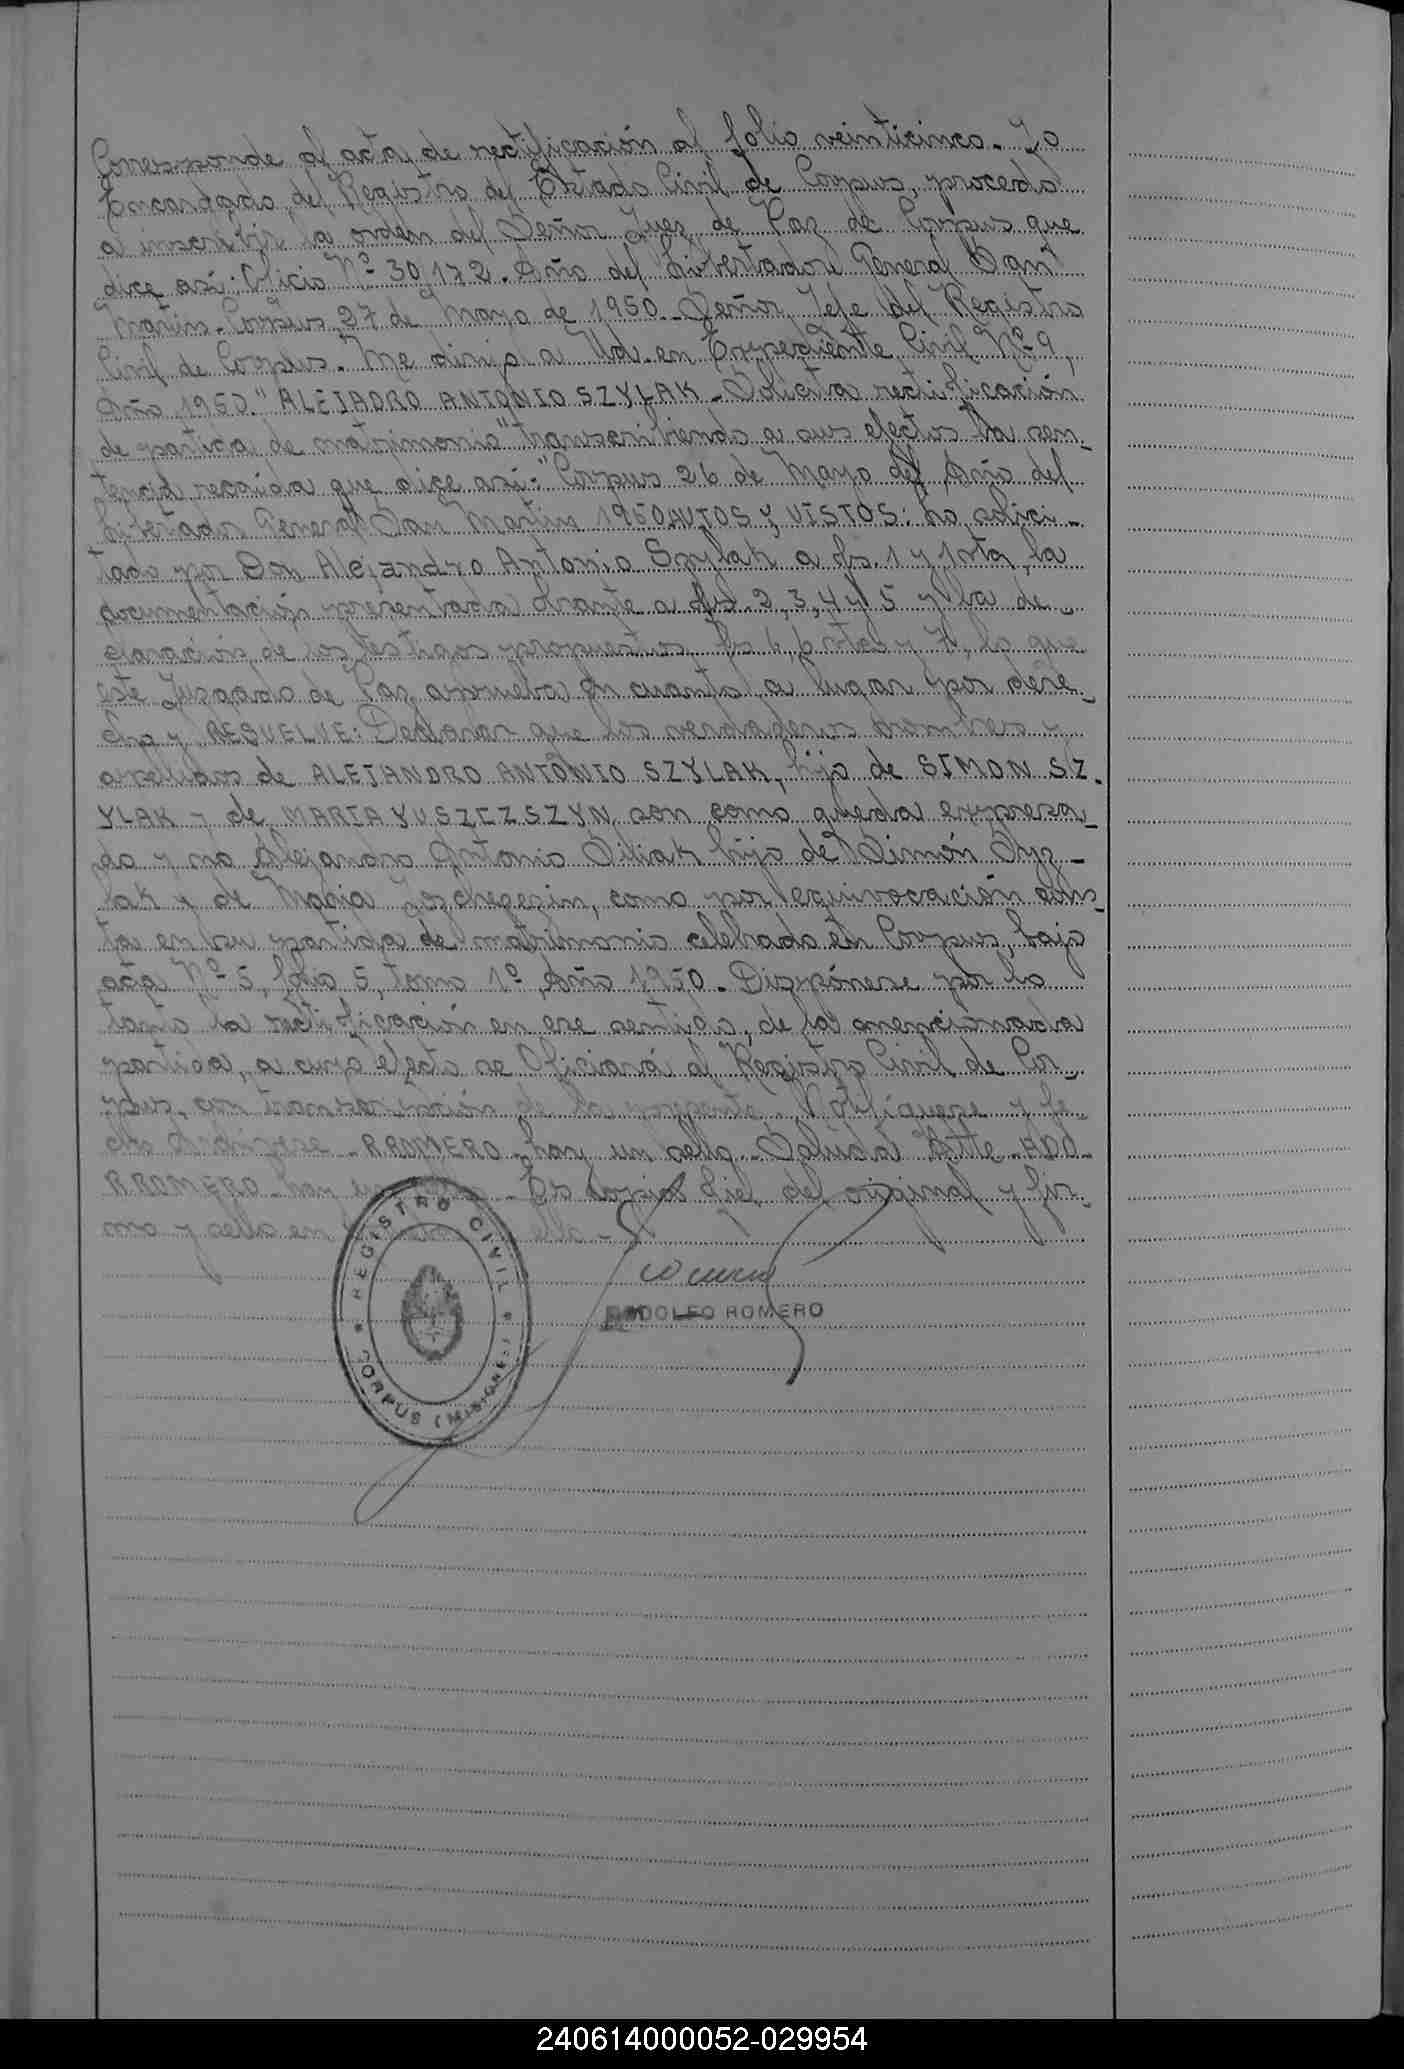 Corresponde al acta de rectificación al folio veinticinco. Yo
Encargado del Registro del Estado Civil de Corpus, procedo
a inscribir la orden del Señor Juez de Paz de Corpus que
dice así: Oficio Nº 30,172. Año del Libertador General San
Martin. Corpus 27 de Mayo de 1950. Señor Jefe del Registro
Civil de Corpus. Me dirijo a Ud. en Expediente Civil Nº 9,
Año 1950. "ALEJADRO ANTONIO SZYLAK - Solicita rectificación
de partida de matrimonio" transcribiendo a sus efectos la sen-
tencia recaida que dice así: "Corpus 26 de Mayo del Año del
Libertador General San Martin 1950 AUTOS y VISTOS: Lo solici-
tado por Don Alejandro Antonio Szylak a fs. 1 y vta, la
documentación presentada obrante a fs. 2, 3, 4 y 5 y la de-
claración de los testigos propuestos, fs 6, 6 vta y 7, lo que
este Juzgado de Paz aprueba en cuanto a lugar por dere-
cho y RESUELVE: Declarar que los verdaderos nombres y
apellidos de ALEJANDRO ANTONIO SZYLAK, hijo de SIMON SZ-
YLAK y de MARIA YUSZCZSZYN, son como queda expresa-
do y no Alejandro Antonio Siliak hijo de Simón Syz-
lak y de Maria Joschegezin, como por equivocación cons-
ta en su partida de matrimonio celebrado en Corpus, bajo
acta Nº 5, folio 5, tomo 1º, Año 1950. Dispónese por lo
tanto la rectificación en ese sentido, de la mencionada
partida, a cuyo efecto se Oficiará al Registro Civil de Cor-
pus, con transcripción de la presente. Notifíquese y fe-
cho Archívese - R ROMERO - hay un sello - Saluda Atte - ADO-
R ROMERO - hay un sello - Es copia fiel del original y fir-
mo y sello en
REGISTRO CIVIL
CORPUS (MISIONES)
RODOLFO ROMERO
240614000052-029954